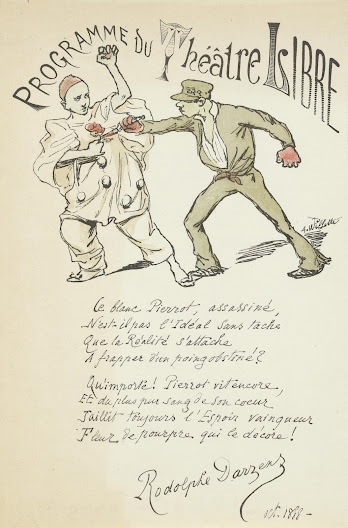 PROGRAMME DU Théâtre LIBRE
A. Willette
Ce blanc Pierrot, assassiné,
N'est-il pas l'Idéal sans tache
Que la Réalité s'attache
A frapper d'un poing obstiné?
Qu'importe! Pierrot vit encore,
Et du plus pur sang de son coeur
Jaillit toujours l'Espoir vainqueur
Fleur de pourpre qui le décore!
Rodolphe Darzens
oct. 1888-